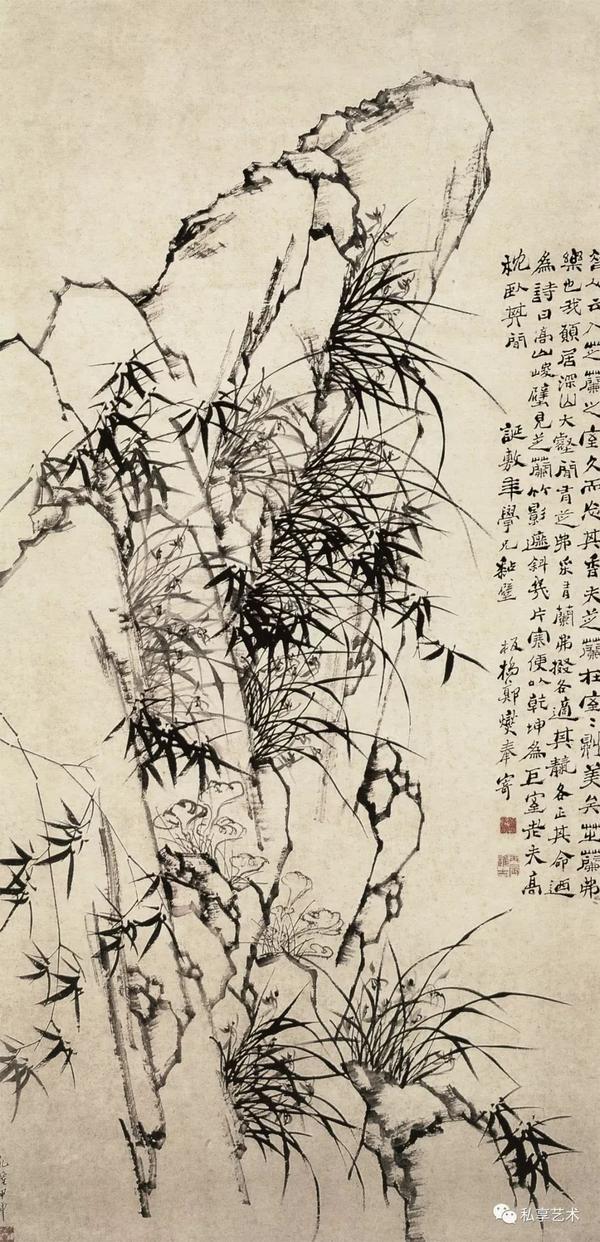 昔人云入芝蘭之室久而忘其香夫芝蘭在室〻則美矣芝蘭弗
樂也我願居深山大壑間有芝弗采有蘭弗掇各適其各正其命迺
為詩曰高山峻壁見芝蘭竹影遮斜幾片寒便以乾坤為巨室老夫高
枕臥其間
誕敷年學兄黏壁
板橋鄭燮奉寄
乾隆甲申
私享艺术